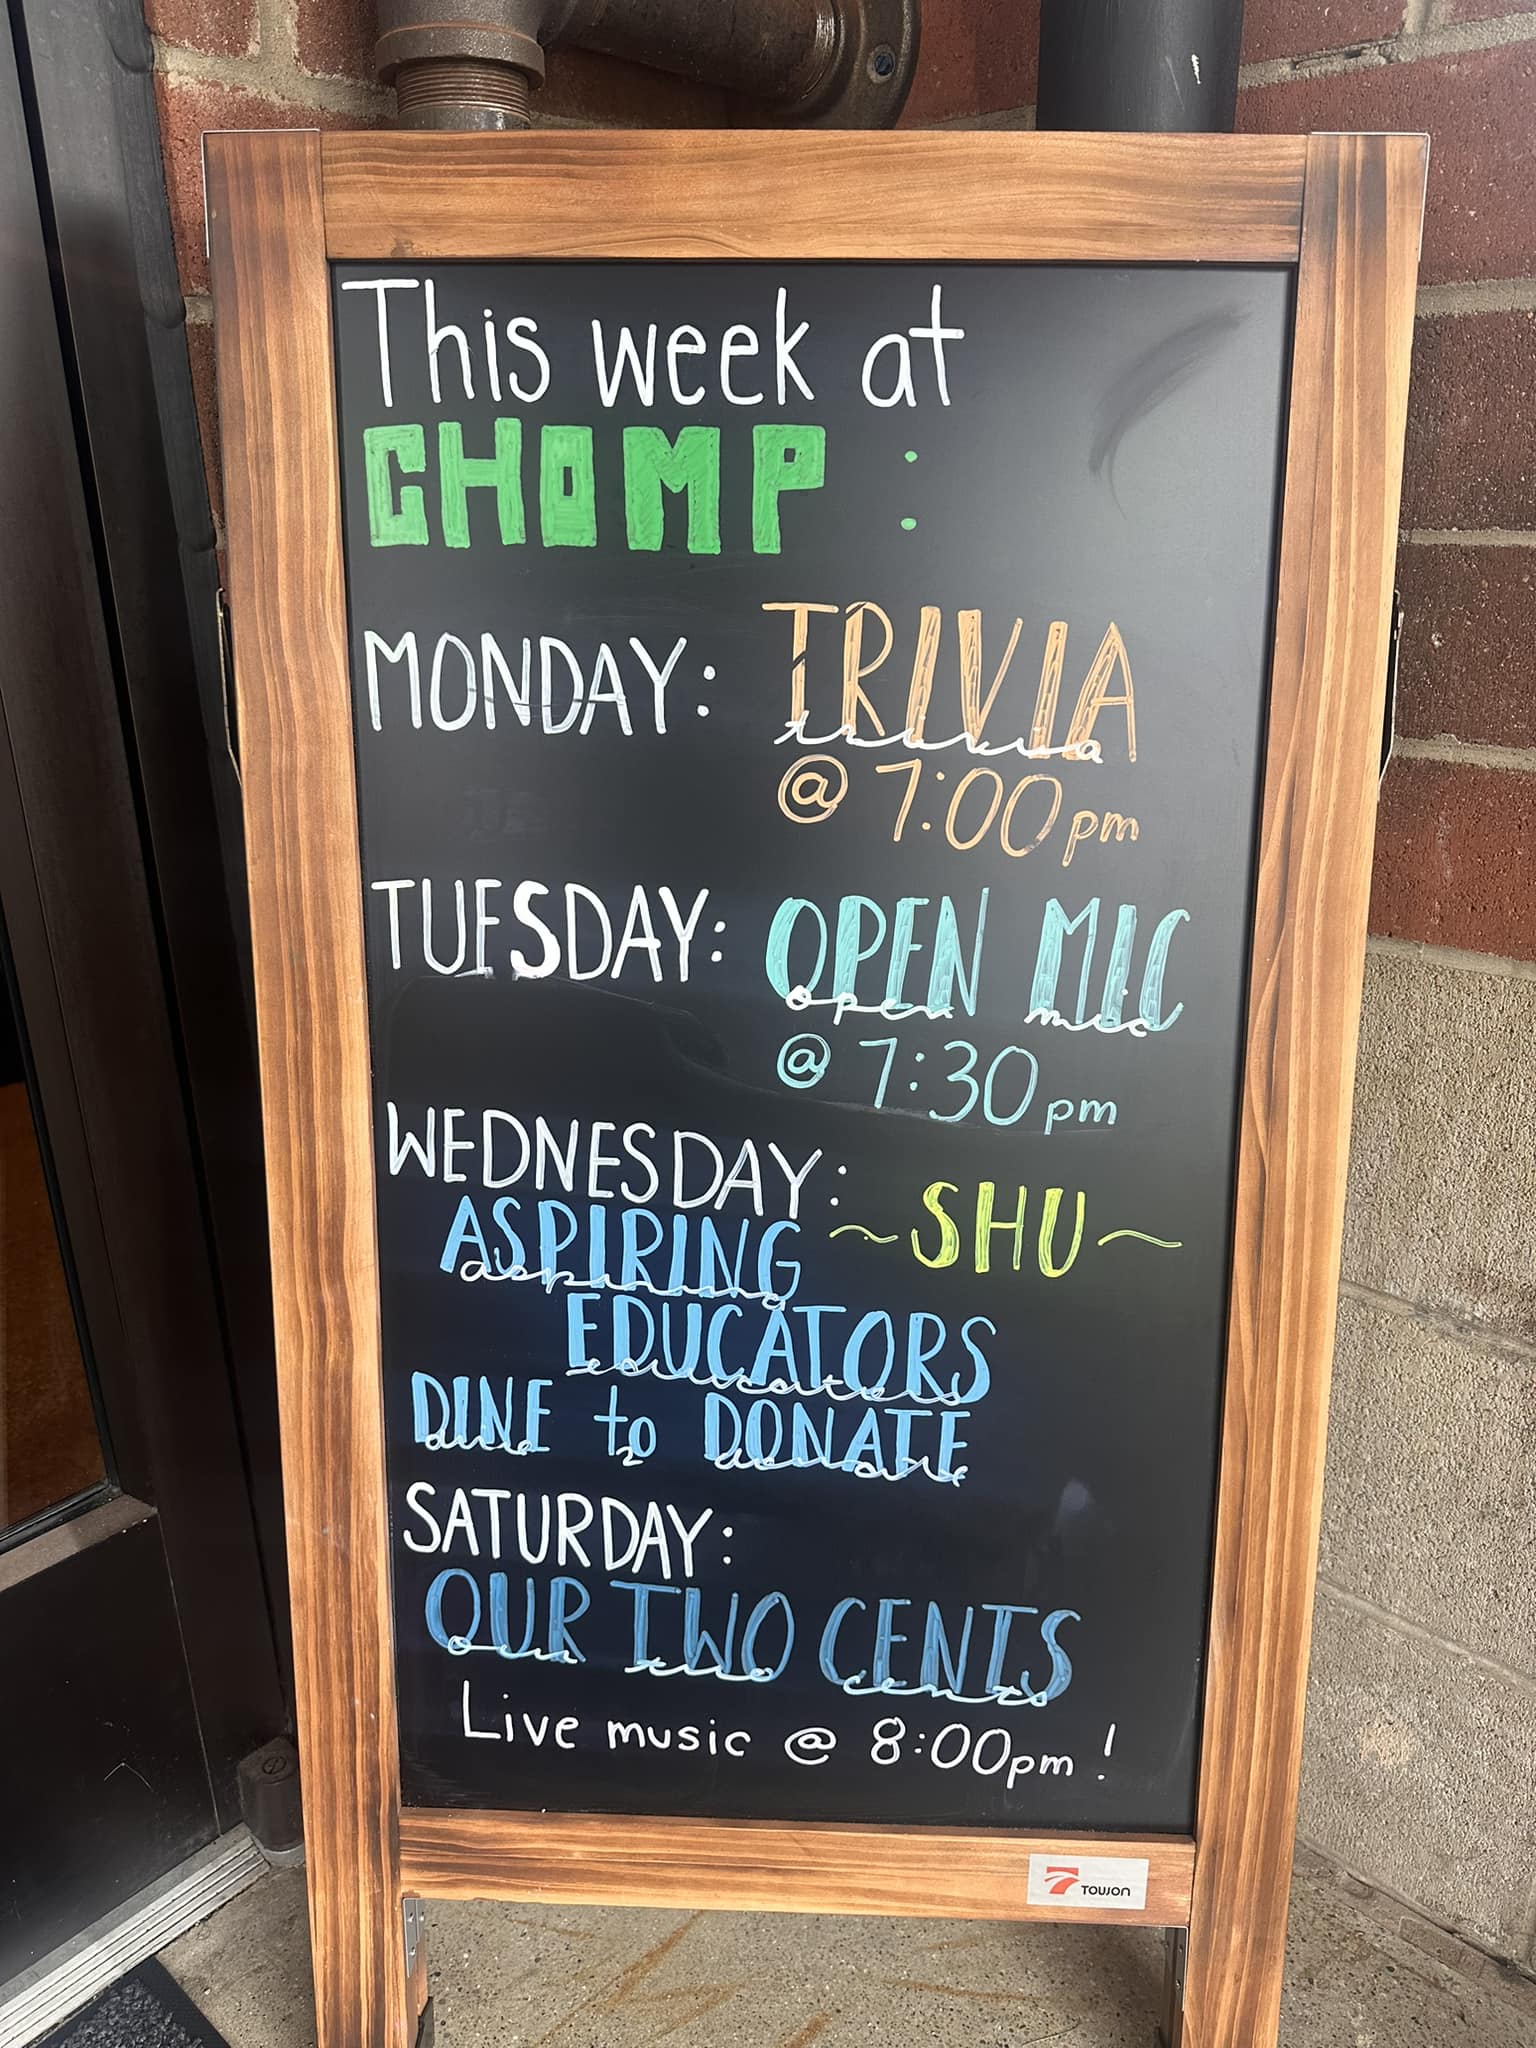 This week at
CHOMP :
MONDAY: TRIVIA
trivia
@ 7:00pm
TUESDAY: OPEN MIC
open mic
@ 7:30pm
WEDNESDAY: ~SHU~
ASPIRING
aspiring
EDUCATORS
educators
DINE to DONATE
dine 2 donate
SATURDAY:
OUR TWO CENTS
our two cents
Live music @ 8:00pm!
TOUJON